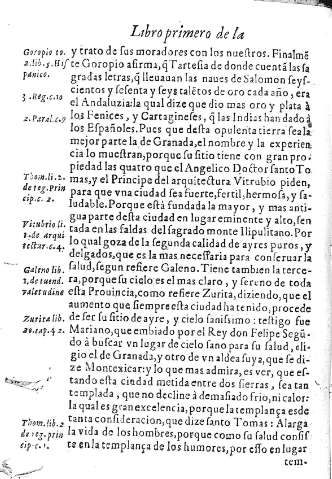 Libro primero de la
Goropio to.
2. lib. 5. His
panico.
3. Reg. c. 10
2. Paral. c. 9
Thom. li. 2.
de reg. Prin
cip. c. 2.
Vitrubio li.
1. de Arqui
tectur. c. 4.
Galeno lib.
1. de tuend.
valetudine
Zurita lib.
20. cap. 42.
Thom. lib. 2
de reg. prin
cip. c. 1.
y trato de sus moradores con los nuestros. Finalmẽ
te Goropio afirma, q̃ Tartesia de donde cuentã las sa
gradas letras, q̃ lleuauan las naues de Salomon seys-
cientos y sesenta y seys talẽtos de oro cada año, era
el Andaluzia: la qual dize que dio mas oro y plata à
los Fenices, y Cartagineses, q̃ las Indias han dado à
los Españoles. Pues que desta opulenta tierra sea la
mejor parte la de Granada, el nombre y la experien
cia lo muestran, porque su sitio tiene con gran pro-
piedad las quatro que el Angelico Doctor santo To
mas, y el Principe del arquitectura Vitrubio piden,
para que vna ciudad sea fuerte, fertil, hermosa, y sa-
ludable. Porque està fundada la mayor, y mas anti-
gua parte desta ciudad en lugar eminente y alto, sen
tada en las faldas del sagrado monte Ilipulitano. Por
lo qual goza de la segunda calidad de ayres puros, y
delgados, que es la mas necessaria para conseruar la
salud, segun refiere Galeno. Tiene tambien la terce-
ra, porque su cielo es el mas claro, y sereno de toda
esta Prouincia, como refiere Zurita, diziendo, que el
aumento que siempre esta ciudad ha tenido, procede
de ser su sitio de ayre, y cielo sanissimo: testigo fue
Mariano, que embiado por el Rey don Felipe Segũ-
do à buscar vn lugar de cielo sano para su salud, eli-
gio el de Granada, y otro de vn aldea suya, que se di-
ze Montexicar: y lo que mas admira, es ver, que es-
tando esta ciudad metida entre dos sierras, sea tan
templada, que no decline à demasiado frio, ni calor:
la qual es gran excelencia, porque la templança es de
tanta consideracion, que dize santo Tomas: Alarga
la vida de los hombres, porque como su salud consis
te en la templança de los humores, por esso en lugar
tem-